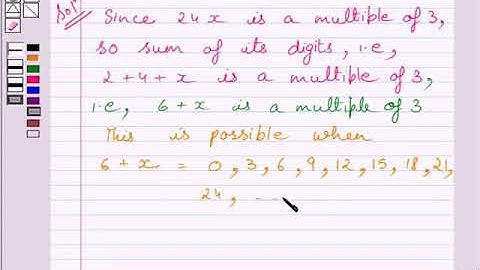 Sol. Since 24x is a multiple of 3,
so sum of its digits, i.e,
2+4+x is a multiple of 3,
i.e, 6 + x is a multiple of 3
This is possible when
6 + x = 0, 3, 6, 9, 12, 15, 18, 21,
24, ...